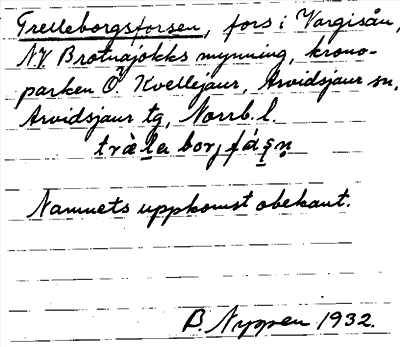 Trelleborgsforsen, fors i Vargisån,
N.V. Brotnajokks mynning, krono-
parken Ö. Kvellejaur, Arvidsjaur sn,
Arvidsjaur tg, Norrb. l.
Namnets uppkomst obekant.
B. Nyppen 1932.